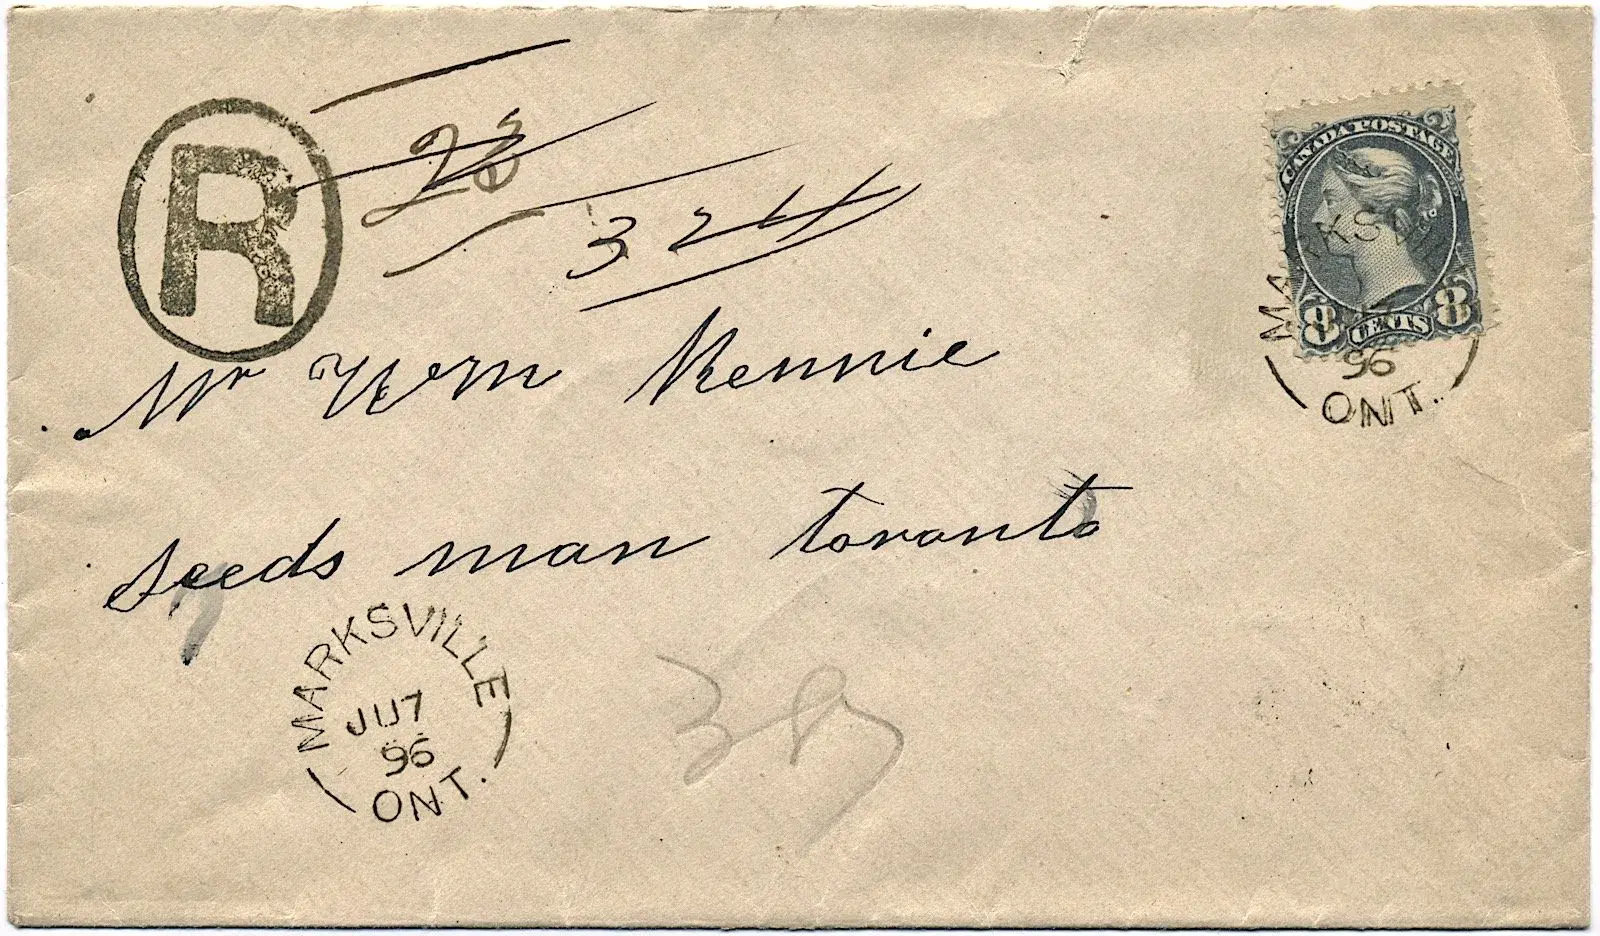 R
28
324
CANADA POSTAGE
8 CENTS 8
MARKSVILLE
96
ONT.
Mr Wm Rennie
seeds man toronto
MARKSVILLE
JU 7
96
ONT.